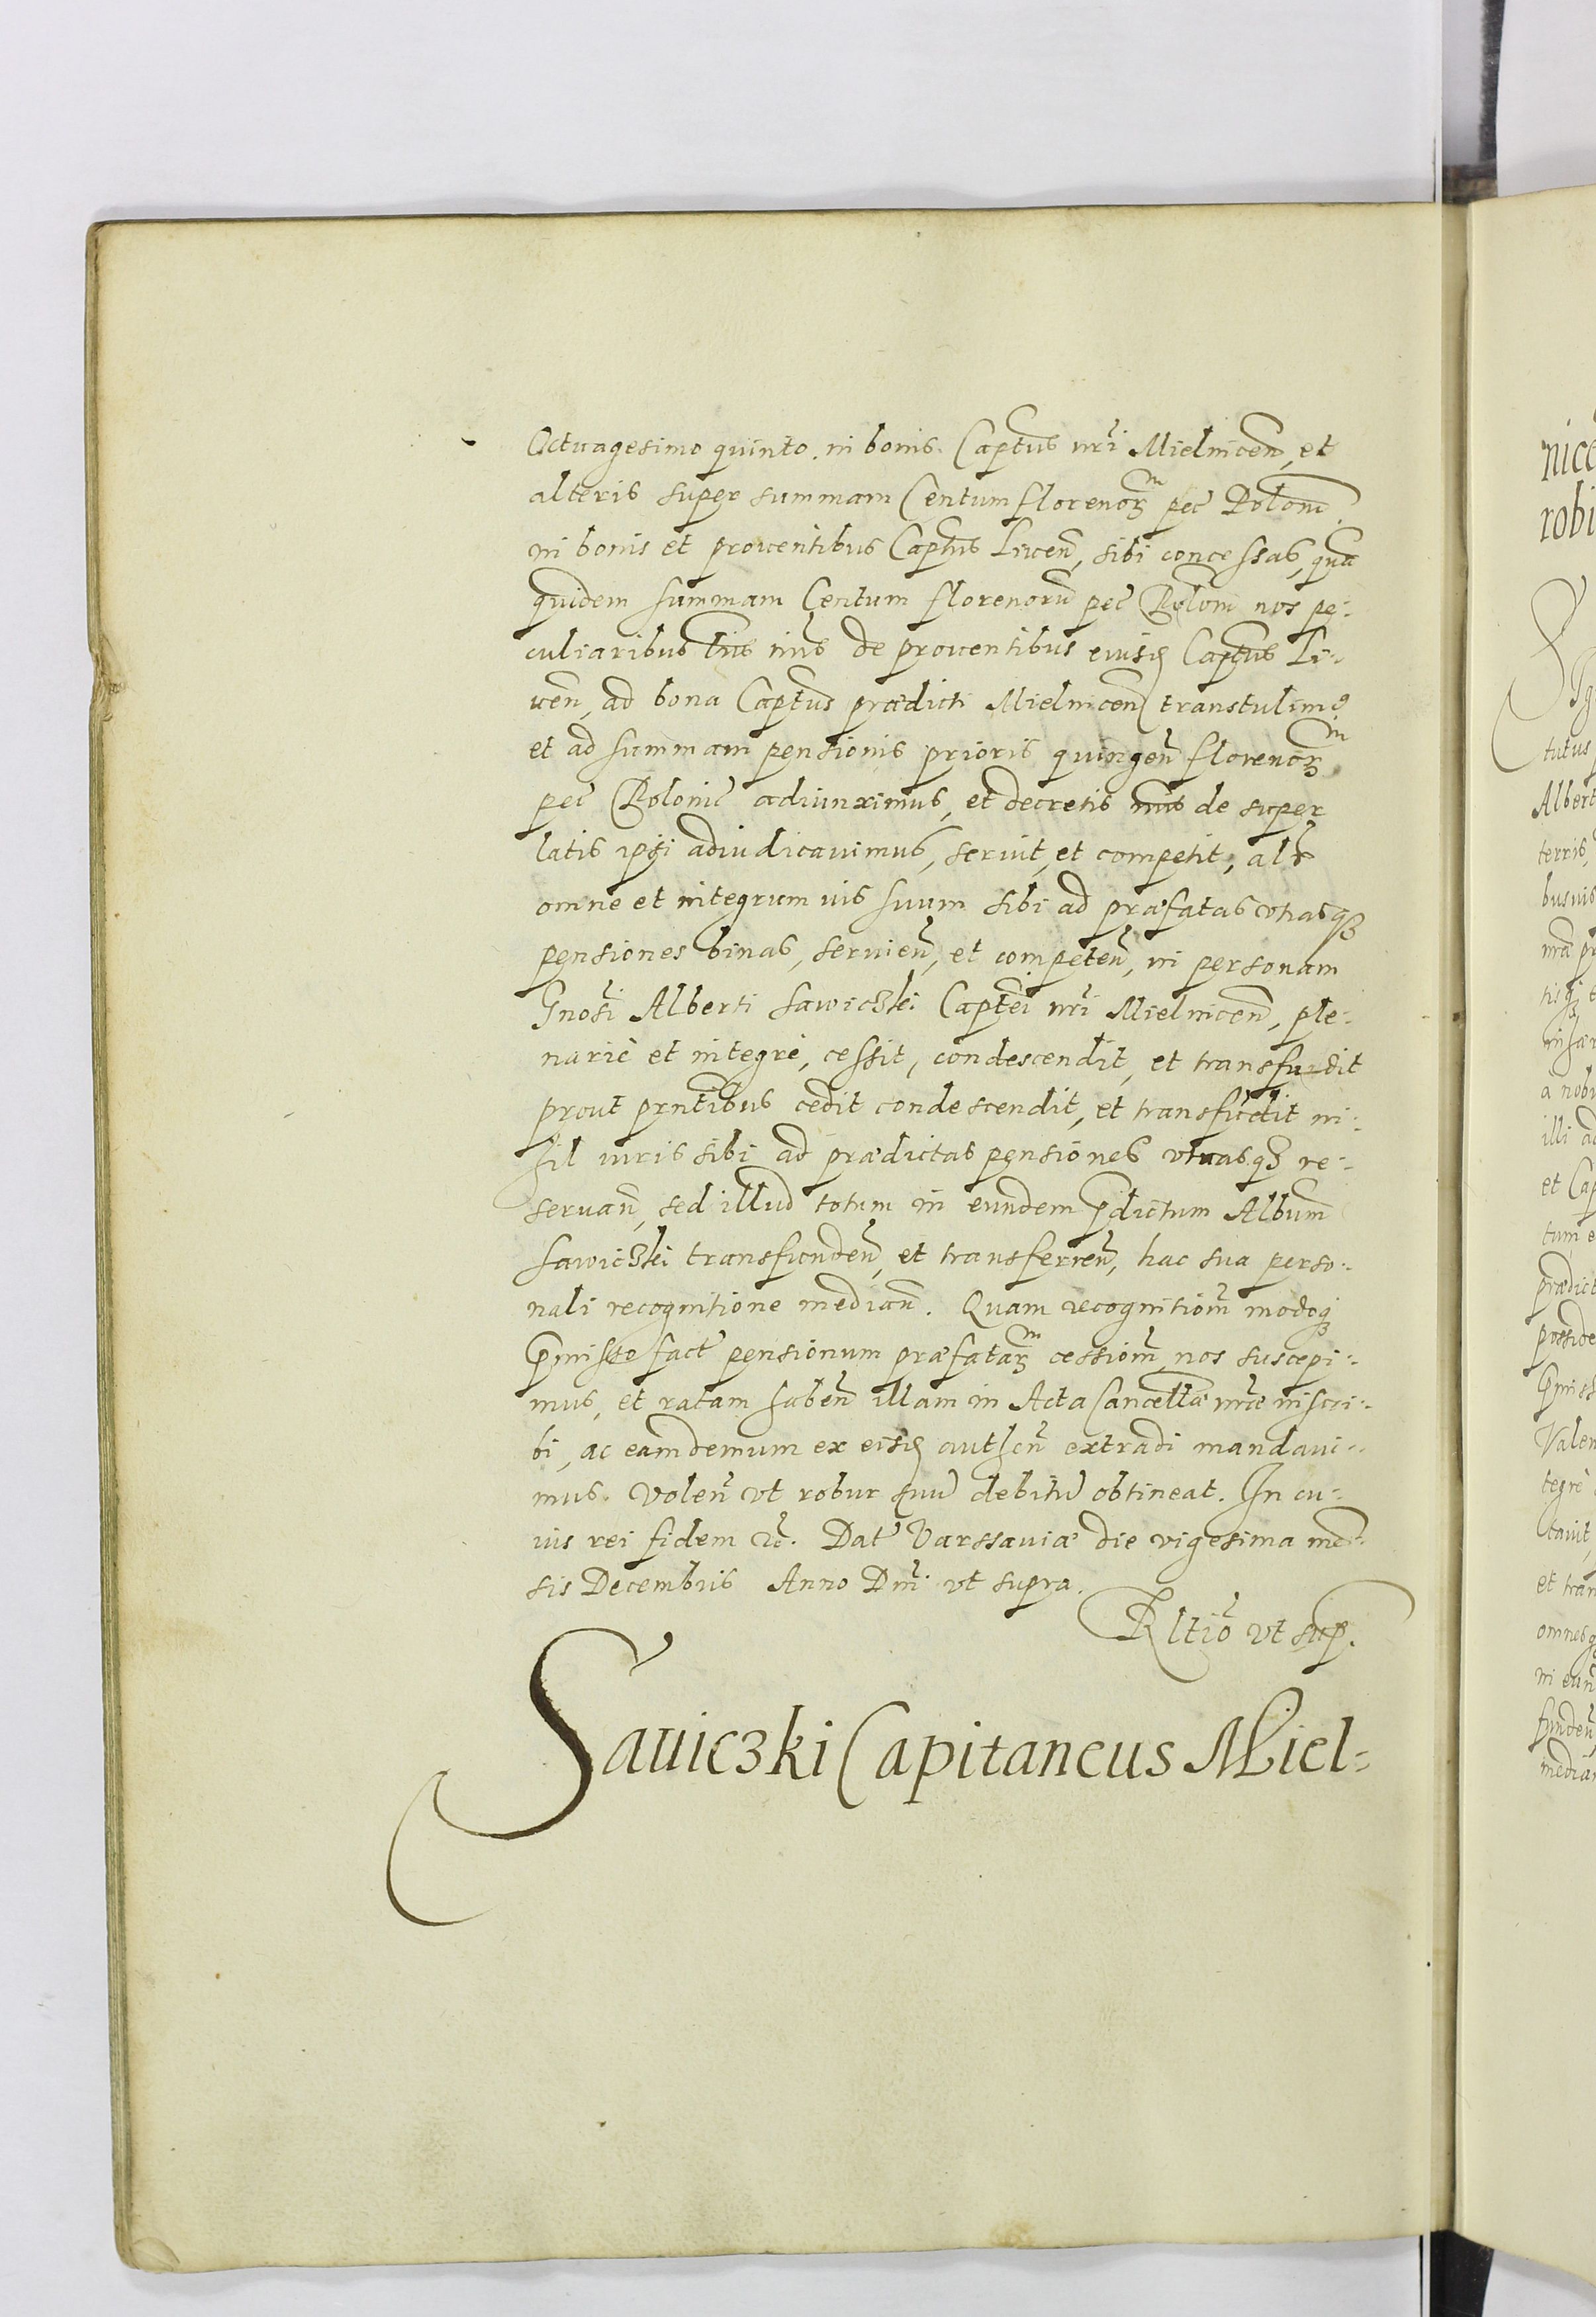 Octuagesimo quinto. in bonis. Captus nri Mielnicen, et
alteris super summam Centum florenorum pec Polom
in bonis et prouentibus Captus Liuen, sibi concessas, qua
quidem summam Centum florenoru pec Polom nos pe-
culiaribus tris nris de prouentibus eiusd Captus Li-
uen, ad bona Captus prædicti Mielnicen transtulim9
et ad summam pensionis prioris quingen florenorum
pec Polonic adiunximus, et decretis nris de super
latis ipsi adiudicauimus, seruit, et competit, als
omne et integrum ius suum sibi ad præfatas vtrasq3
pensiones binas, seruien, et competen, in personam
Gnosi Alberti Sawiczki Captei nri Mielnicen, ple-
narie et integre, cessit, condescendit, et transfudit
prout prntibus cedit condescendit, et transfundit ni-
hil iuris sibi ad prædictas pensiones vtrasq3 re-
seruan, sed illud totum in eundem pdictum Album
Sawiczki transfunden, et transferren, hac sua perso-
nali recognitione median. Quam recognitiom modoq3
pmisso fact pensionum præfatarum cessiom, nos suscepi-
mus, et ratam haben illam in Acta Cancellæ nræ inscri-
bi, ac eamdemum ex eisd authen extradi mandaui-
mus. Volen vt robur suu debitu obtineat. In cu-
ius rei fidem &c. Dat Varssauiæ die vigesima men-
sis Decembris Anno Dni vt supra.
Rltio vt sup.
Sauiczki Capitaneus Miel-